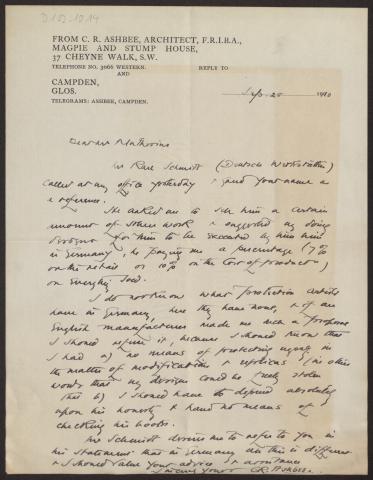 D 102-1014
FROM C. R. ASHBEE, ARCHITECT, F.R.I.B.A.,
MAGPIE AND STUMP HOUSE,
37 CHEYNE WALK, S.W.
TELEPHONE NO. 3966 WESTERN. REPLY TO
AND
CAMPDEN,
GLOS.
TELEGRAMS: ASHBEE, CAMPDEN.
Sep. 20 1910
Dear Muthesius
Mr Karl Schmidt (Deutsche Werkstätten)
called at my office yesterday & gave your name as
a reference.
He asked me to sell him a certain
amount of & suggested my doing
designs for him to be executed by him
in Germany, he paying me a percentage (7%
on the retail or 10% on the cost of production)
on everything sold.
I do not know what protection artists
have in Germany, here they have none, & if an
English manufacturer made me such a proposal
I should refuse it, because I should know that
I had a) no means of protecting myself in
the matter of modifications & replicas (in other
words that my designs could be freely stolen
& b) I should have to depend absolutely
upon his honesty & have no means of
checking his books.
Mr Schmidt desires me to refer to you in
his statement that in Germany all this is different
& I should value your advice & assistance
Sincerely yours C.R. Ashbee.